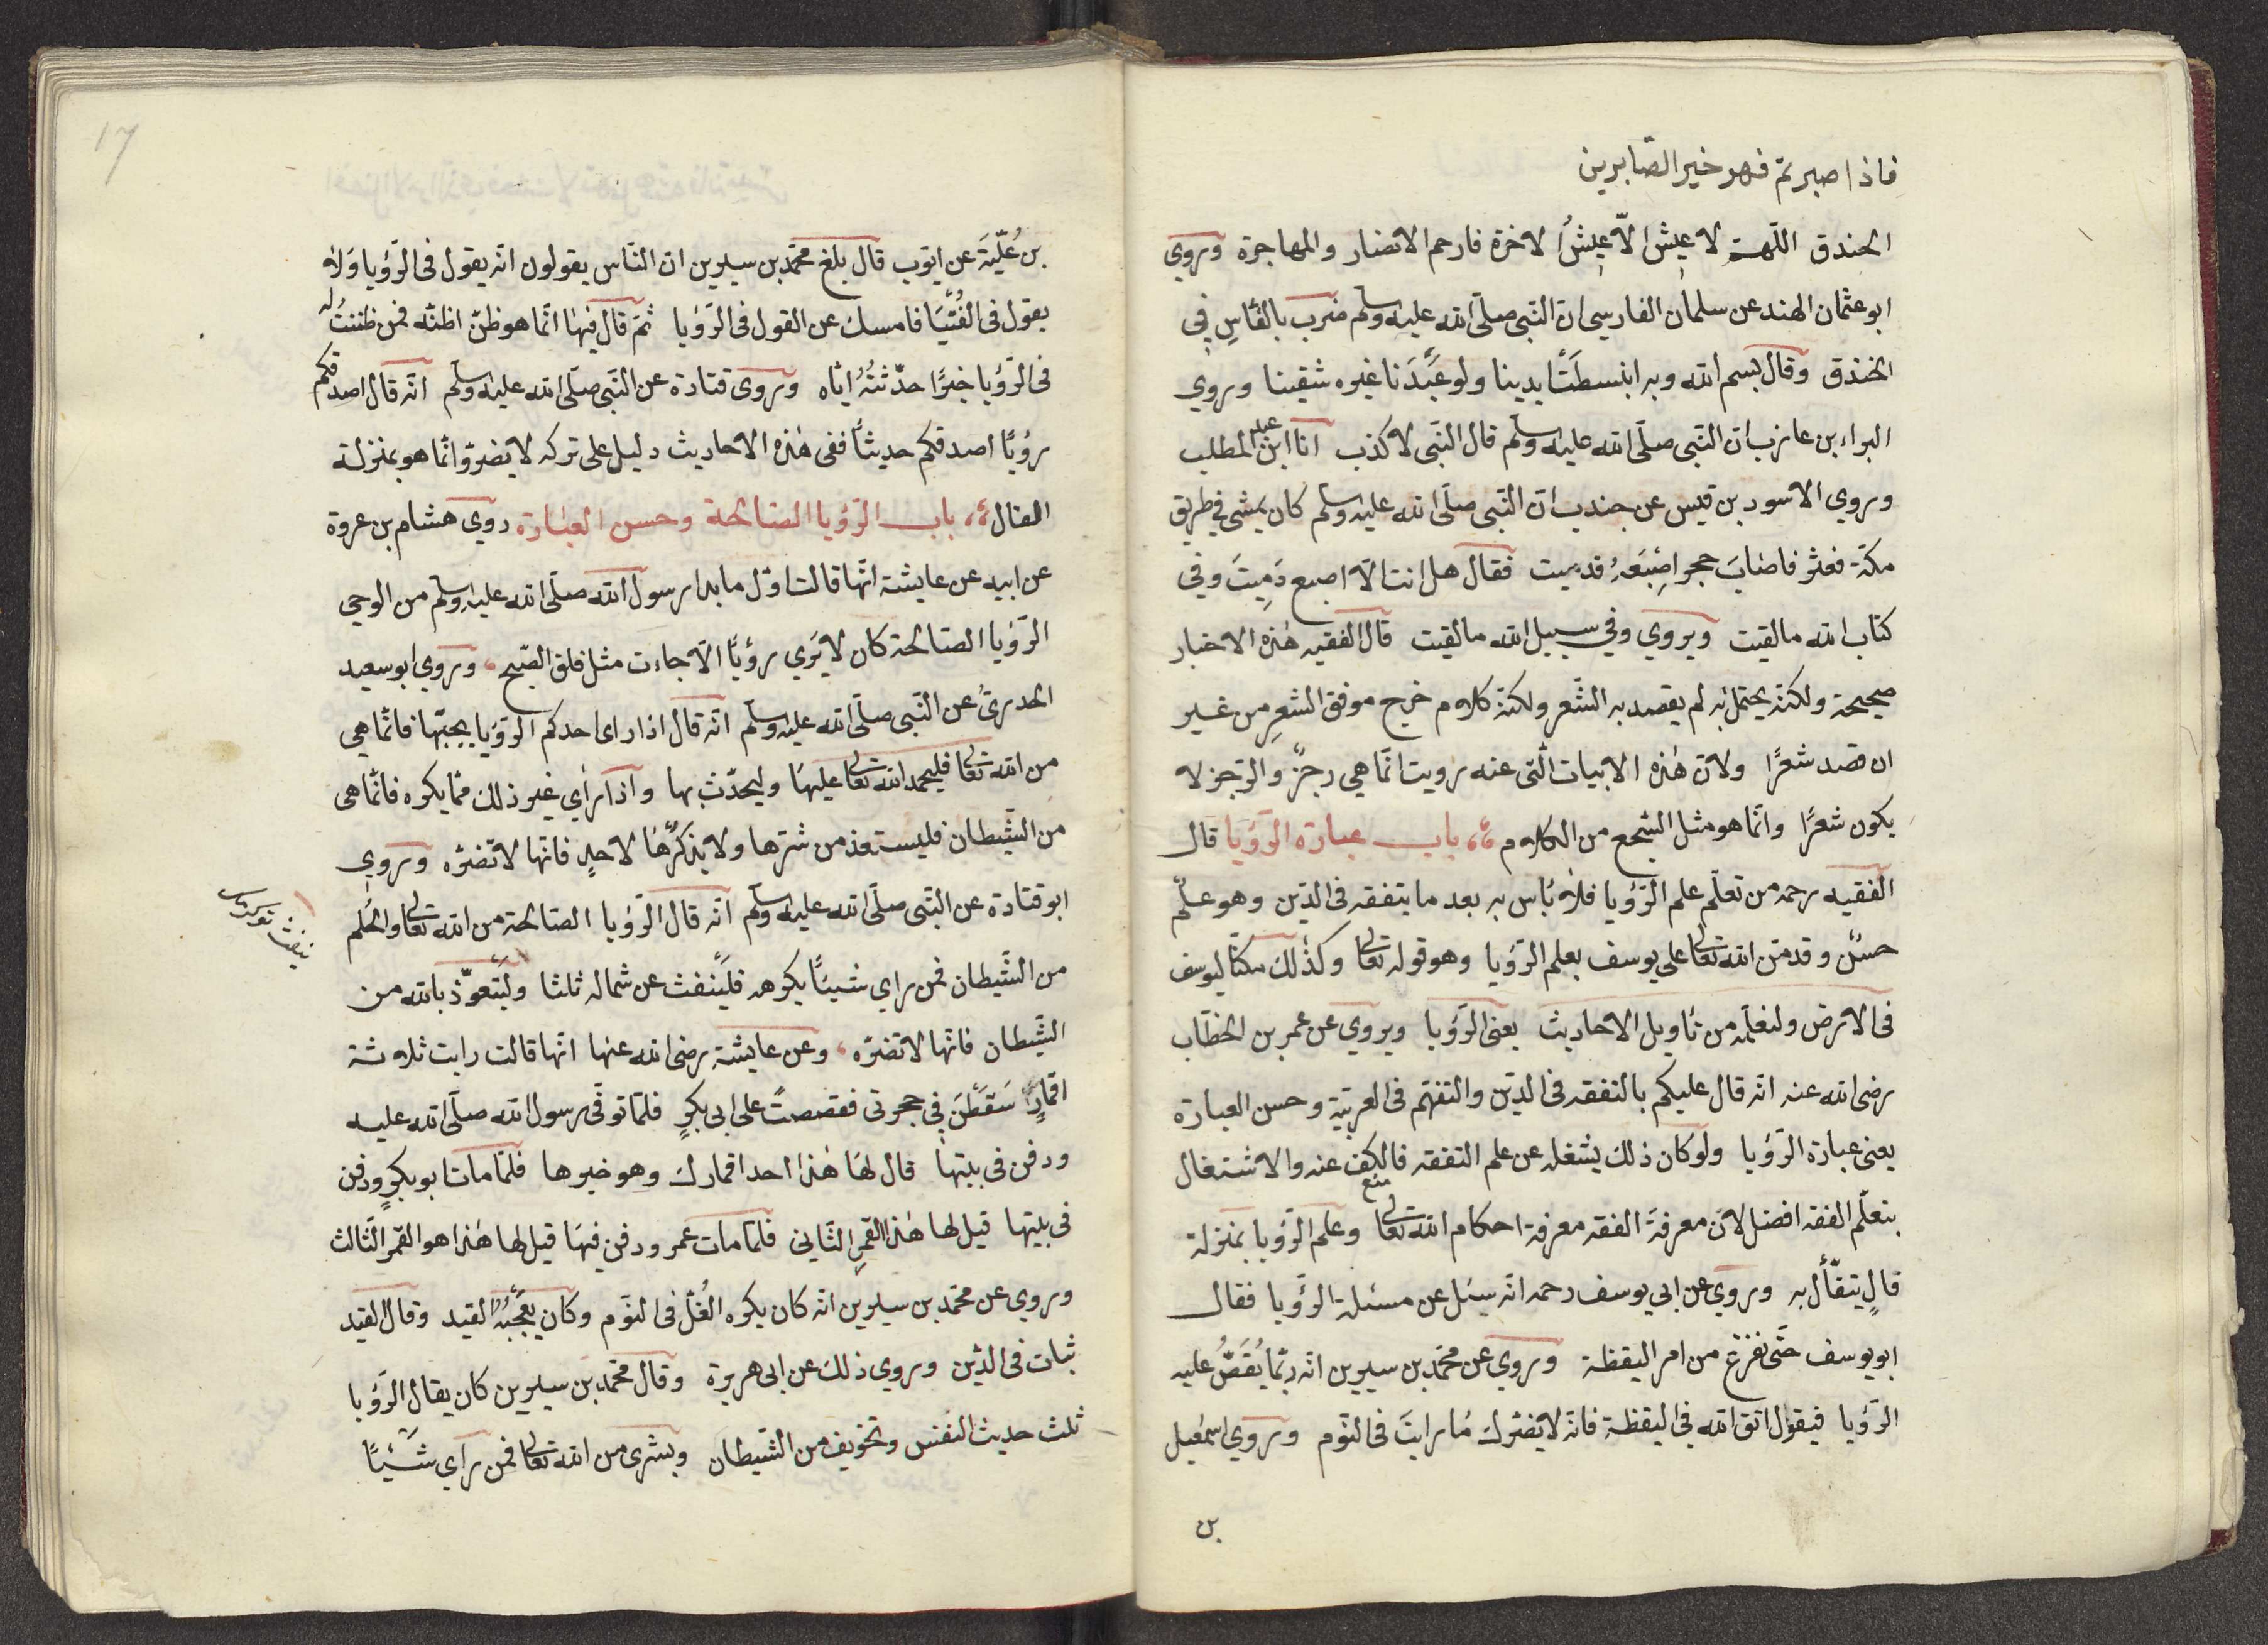 فاذا صبرتم فهو خير الصّابرين
الخندق اللّهمّ لا عيش الّا عيشُ الاخرة فارحم الانصار والمهاجرة وروي
ابو عثمان الهند عن سلمان الفارسي انّ النّبي صلّى الله عليه وسلّم ضرب بالفاس في
الخندق وقال بسم الله وبه ابنسطَتْ يدينا ولو عَبَدَنا غيره شقينا وروي
البراء بن عازب انّ النّبي صلّى الله عليه وسلّم قال النّبي لا كذب انا ابن عبد المطلب
وروي الاسود بن قيس عن جندب انّ النّبي صلّى الله عليه وسلّم كان يمشي في طريق
مكّة فعثر فاصابَ حجر اصْبَعَهُ فدميت فقال هل انت الّا اصبع دَمِيتَ وفي
كتاب الله مالقيت ويروي وفي سبيل الله مالقيت قال الفقيه هٰذه الاخبار
صحيحة ولكنّه يحتمل انه لم يقصد به الشّعر ولكنّه كلام خرج موفق الشعرِ من غير
ان قصد شعرًا ولانّ هٰذه الابيات الّتى عنه رويت انّما هي رجزٌ والرّجز لا
يكون شعرًا وانّما هو مثل السّجع من الكلام باب عبارة الرّؤيا قال
الفقيه رحمه من تعلّم علم الرّؤيا فلا بأس به بعد ما يتفقه فى الدّين وهو علم
حسنٌ وقد منّ الله تعالى على يوسف بعلم الرّؤيا وهو قوله تعالى وكذٰلك مكنّا ليوسف
فى الارض ولنعلّمه من تأويل الاحاديث يعنى الرّؤيا ويروي عن عمر بن الخطّاب
رضى الله عنه انّه قال عليكم بالتفقه فى الدّين والتفهّم فى العربيّة وحسن العبارة
يعنى عبارة الرّؤيا ولو كان ذلك يشغله عن علم التفقه فالكفّ عنه والاشتغال
منع
بتعلّم الفقه افضل لانّ معرفةَ الفقه معرفة احكام الله تعالى وعلم الرّؤيا بمنزلة
فالٍ يتفّأل به وروي عن ابي يوسف رحمه انّه سئل عن مسئلة الرّؤيا فقال
ابو يوسف حتّى نفرغ من امر اليقظة وروي عن محمّد بن سيرين انّه ربّما يُقَصُّ عليه
الرّؤيا فيقول اتق الله في اليقظة فانّه لا يضرّك ما رايتَ فى النّوم وروي اسمٰعيل
بن
17
بن عُلَيّةَ عن ايّوب قال بلغ محمّد بن سيرين ان النّاس يقولون انّه يقول فى الرّؤيا ولا
يقول فى الفُتْيَا فامسك عن القول فى الرّؤيا ثمّ قال فيها انّما هو ظنّ اظنّه فمن ظننتُ له
فى الرّؤيا خيرًا حدّثتُهُ ايّاه وروى قتادة عن النّبى صلّى الله عليه وسلّم انّه قال اصدقكم
رؤيًا اصدقكم حديثاً ففى هٰذه الاحاديث دليل على تركه لا يضرّ وانّما هو بمنزلة
الفال باب الرّؤيا الصّالحة وحسن العبارة روي هشام بن عروة
عن ابيه عن عايشة انّها قالت اوّل ما بدا رسول الله صلّى الله عليه وسلّم من الوحي
الرّؤيا الصّالحة كان لا يَرَي رؤيًا الّا جاءت مثل فلق الصّبح وروي ابو سعيد
الخدرىّ عن النّبى صلّى الله عليه وسلّم انّه قال اذا راى احدكم الرّؤيا يحبّها فانّما هي
من الله تعالى فليحمد الله تعالى عليها وليحدّث بها واذا رأي غير ذلك ممّا يكره فانّما هى
من الشّيطان فليستعذ من شرّها ولا يذكرُها لاحدٍ فانّها لا تضرّه وروي
ابو قتادة عن النّبى صلّى الله عليه وسلّم انّه قال الرّؤيا الصّالحة من الله تعالى والحُلُم
من الشّيطان فمن راي شيئًا يكرهه فليَنْفث عن شماله ثلثا وليَتَعوّذ بالله من
الشّيطان فانّها لا تضرّه وعن عايشة رضى الله عنها انّها قالت رايت ثلاثة
اقمارٍ سَقَطْنَ في حجرتى فقصصت على ابى بكرٍ فلمّا توفّى رسول الله صلّى الله عليه
ودفن فى بيتها قال لها هٰذا احد اقمارك وهو خيرها فلمّا مات ابو بكرٍ ودفن
فى بيتها قيل لها هٰذا القمر الثّاني فلمّا مات عمر ودفن فيها قيل لها هٰذا هو القمر الثّالث
وروي عن محمّد بن سيرين انّه كان يكره الغُلّ فى النّوم وكان يعجبُه القيد وقال القيد
ثبات فى الدّين وروي ذلك عن ابى هريرة وقال محمّد بن سيرين كان يقال الرّؤيا
ثلث حديث النّفس وتخويف من الشّيطان وبشرى من الله تعالى فمن راي شَيْئًا